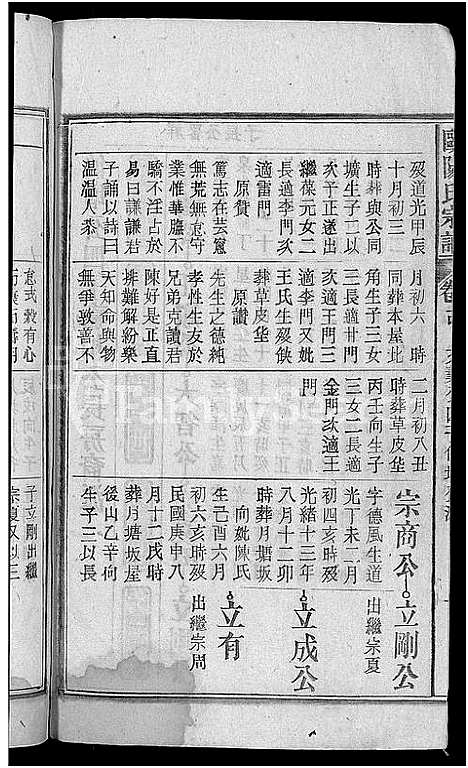 歐陽氏宗譜
歿道光甲辰
十月初三
時葬與公同
壙生子二以
次于正遂出
繼葆元女二
長適李門次
適雷門
原贊
篤志在芸窻
無荒無怠守
業惟華膴不
驕不淫占於
易曰謙謙君
子誦以詩曰
溫溫人恭
月初六 時
同葬本屋北
角生子女三
三長適甘門
次適王門三
適李門又妣
王氏生歿
葬草皮垄
原讚
先生之德純
孝性生友於
兄弟克讃君
陳好是正直
排難解紛樂
天知命與物
無爭敦善不
二月初八丑
時葬草皮垄
丙壬向生子
三女二長適
金門次適王
門
宗商公
字德風生道
光丁未二月
初四亥時歿
光緒十三年
八月十二卯
時葬月塘坂
向妣陳氏
生己酉六月
初六亥時歿
民國庚申八
月十二戌時
葬月塘坂屋
後山乙辛向
生子三以長
立剛公
出繼宗夏
立成公
立有
出繼宗周
子立剛出繼
宗夏又以三